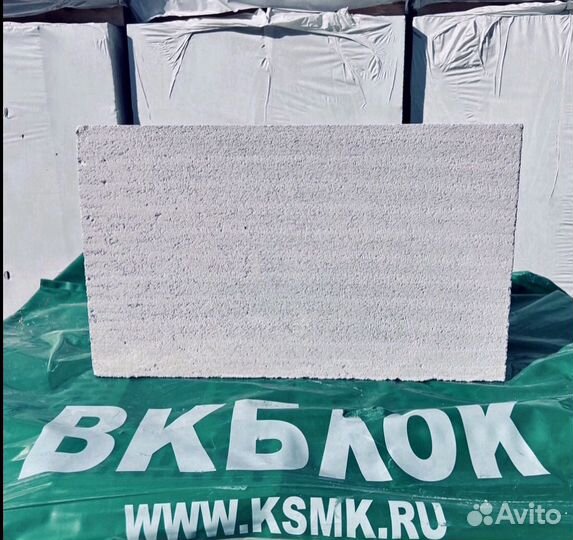 ВКБЛОК
WWW.KSMK.RU
Avito